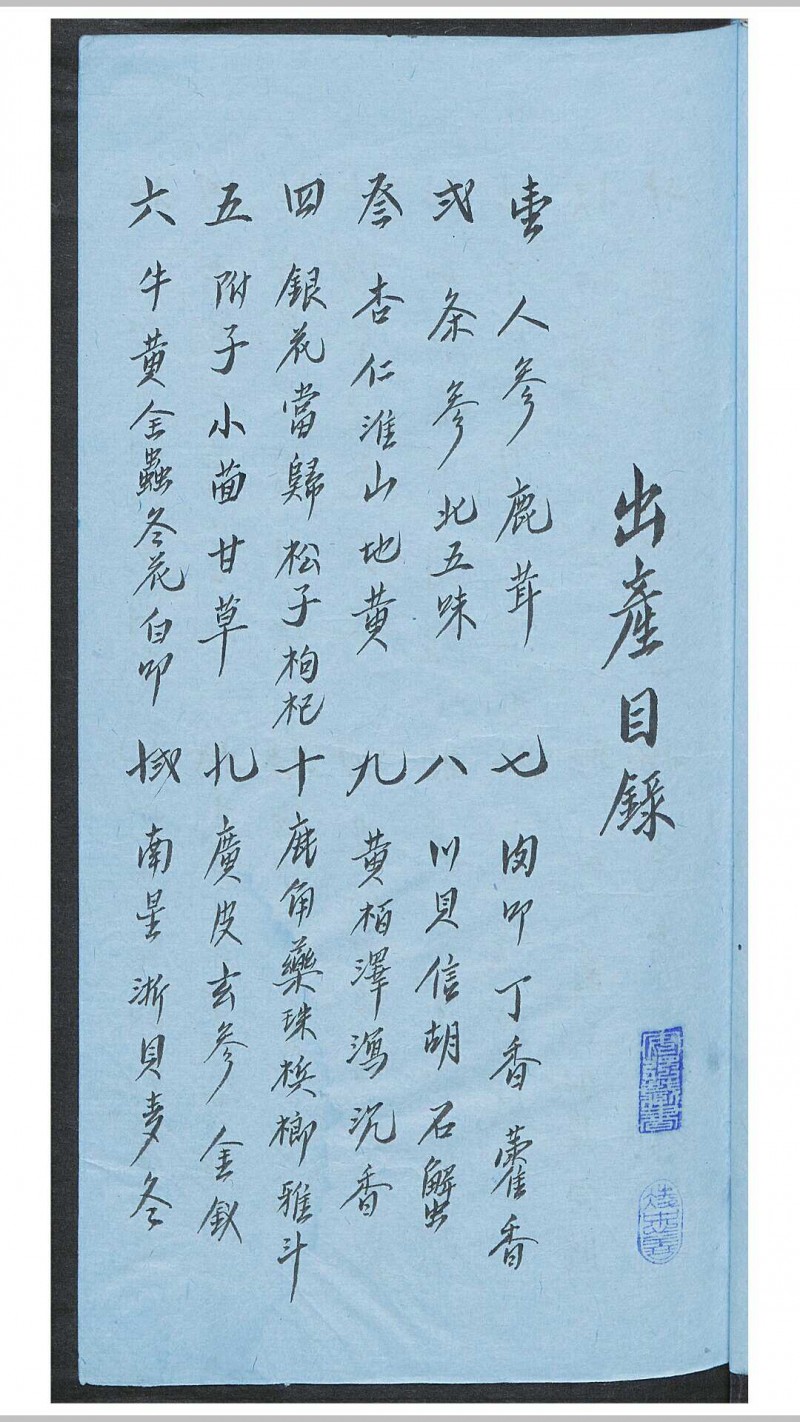 出產目錄
壹 人參 鹿茸
弍 条參 北五味
叁 杏仁 淮山 地黄
四 銀花 當歸 松子 枸杞
五 附子 小茴 甘草
六 牛黄 全蟲 冬花 白叩
七 肉叩 丁香 藿香
八 川貝 信胡 石蟹
九 黄栢 澤瀉 沉香
十 鹿角 藥珠 梹榔 雅斗
十一 廣皮 玄參 金釵
十弍 南星 浙貝 麦冬